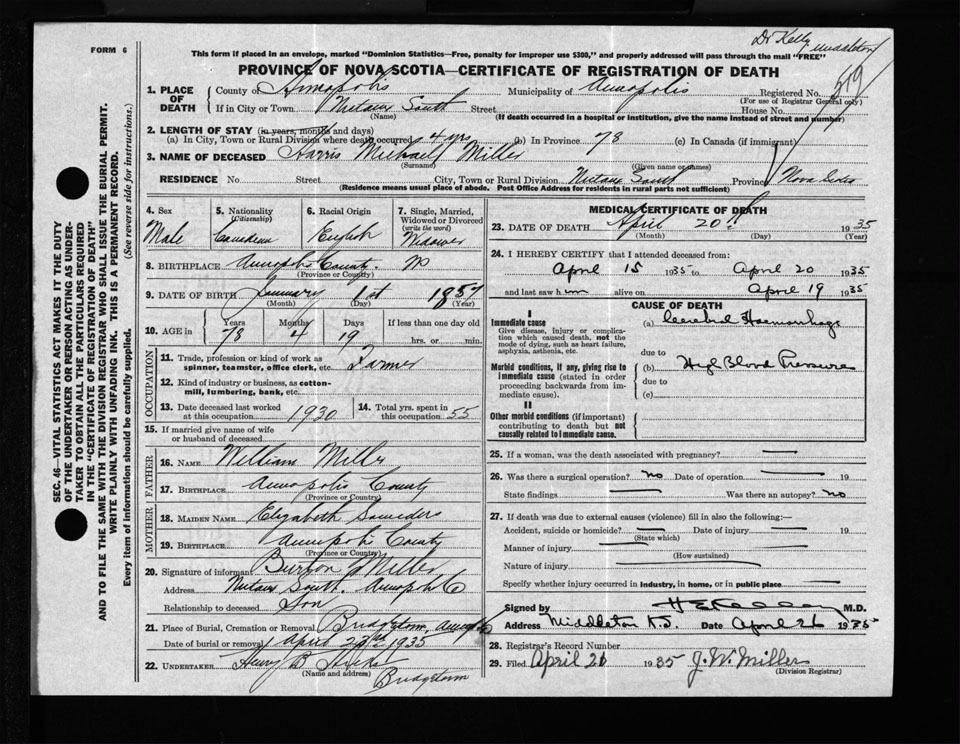 Dr Kelly
Middleton
FORM 6
This form if placed in an envelope, marked "Dominion Statistics—Free, penalty for improper use $300," and properly addressed will pass through the mail "FREE"
PROVINCE OF NOVA SCOTIA—CERTIFICATE OF REGISTRATION OF DEATH
519
1. PLACE OF DEATH County of Annapolis Municipality of Annapolis Registered No.
(For use of Registrar General only)
If in City or Town Nictaux South Street House No.
(Name) (If death occurred in a hospital or institution, give the name instead of street and number)
2. LENGTH OF STAY (in years, months and days)
(a) In City, Town or Rural Division where death occurred 4 yrs (b) In Province 78 (c) In Canada (if immigrant)
3. NAME OF DECEASED Harris Michael Miller
(Surname) (Given name or names)
RESIDENCE No. Street City, Town or Rural Division Nictaux South Province Nova Scotia
(Residence means usual place of abode. Post Office Address for residents in rural parts not sufficient)
SEC. 46—VITAL STATISTICS ACT MAKES IT THE DUTY
OF THE UNDERTAKER OR PERSON ACTING AS UNDER-
TAKER TO OBTAIN ALL THE PARTICULARS REQUIRED
IN THE "CERTIFICATE OF REGISTRATION OF DEATH"
AND TO FILE THE SAME WITH THE DIVISION REGISTRAR WHO SHALL ISSUE THE BURIAL PERMIT.
WRITE PLAINLY WITH UNFADING INK. THIS IS A PERMANENT RECORD.
Every item of information should be carefully supplied. (See reverse side for instructions.)
4. Sex 5. Nationality (Citizenship) 6. Racial Origin 7. Single, Married, Widowed or Divorced (write the word)
Male Canadian English Widower
8. BIRTHPLACE Annapolis County. NS
(Province or Country)
9. DATE OF BIRTH January 1st 1857
(Month) (Day) (Year)
10. AGE in Years Months Days If less than one day old
78 4 19 hrs. or min.
OCCUPATION
11. Trade, profession or kind of work as spinner, teamster, office clerk, etc. Farmer
12. Kind of industry or business, as cotton-mill, lumbering, bank, etc.
13. Date deceased last worked at this occupation 1930 14. Total yrs. spent in this occupation 55
15. If married give name of wife or husband of deceased
FATHER
16. NAME William Miller
17. BIRTHPLACE Annapolis County
(Province or Country)
MOTHER
18. MAIDEN NAME Elizabeth Saunders
19. BIRTHPLACE Annapolis County
(Province or Country)
20. Signature of informant Burton Miller
Address Nictaux South. Annapolis Co
Relationship to deceased Son
21. Place of Burial, Cremation or Removal Bridgetown, Annapolis
Date of burial or removal April 23rd 1935
22. UNDERTAKER Henry B Hicks
(Name and address) Bridgetown
MEDICAL CERTIFICATE OF DEATH
23. DATE OF DEATH April 20th 1935
(Month) (Day) (Year)
24. I HEREBY CERTIFY that I attended deceased from:
April 15 1935 to April 20 1935
and last saw him alive on April 19 1935
CAUSE OF DEATH
I
Immediate cause (a) Cerebral Haemorrhage
Give disease, injury or complication which caused death, not the mode of dying, such as heart failure, asphyxia, asthenia, etc.
due to
Morbid conditions, if any, giving rise to immediate cause (stated in order proceeding backwards from immediate cause). (b) High Blood Pressure
due to
(c)
II
Other morbid conditions (if important) contributing to death but not causally related to immediate cause.
25. If a woman, was the death associated with pregnancy?
26. Was there a surgical operation? no Date of operation 19
State findings Was there an autopsy? no
27. If death was due to external causes (violence) fill in also the following:—
Accident, suicide or homicide? Date of injury 19
(State which)
Manner of injury
(How sustained)
Nature of injury
Specify whether injury occurred in industry, in home, or in public place
Signed by H E Kelley M.D.
Address Middleton N.S. Date April 26 1935
28. Registrar's Record Number
29. Filed April 26 1935 J. W. Miller
(Division Registrar)